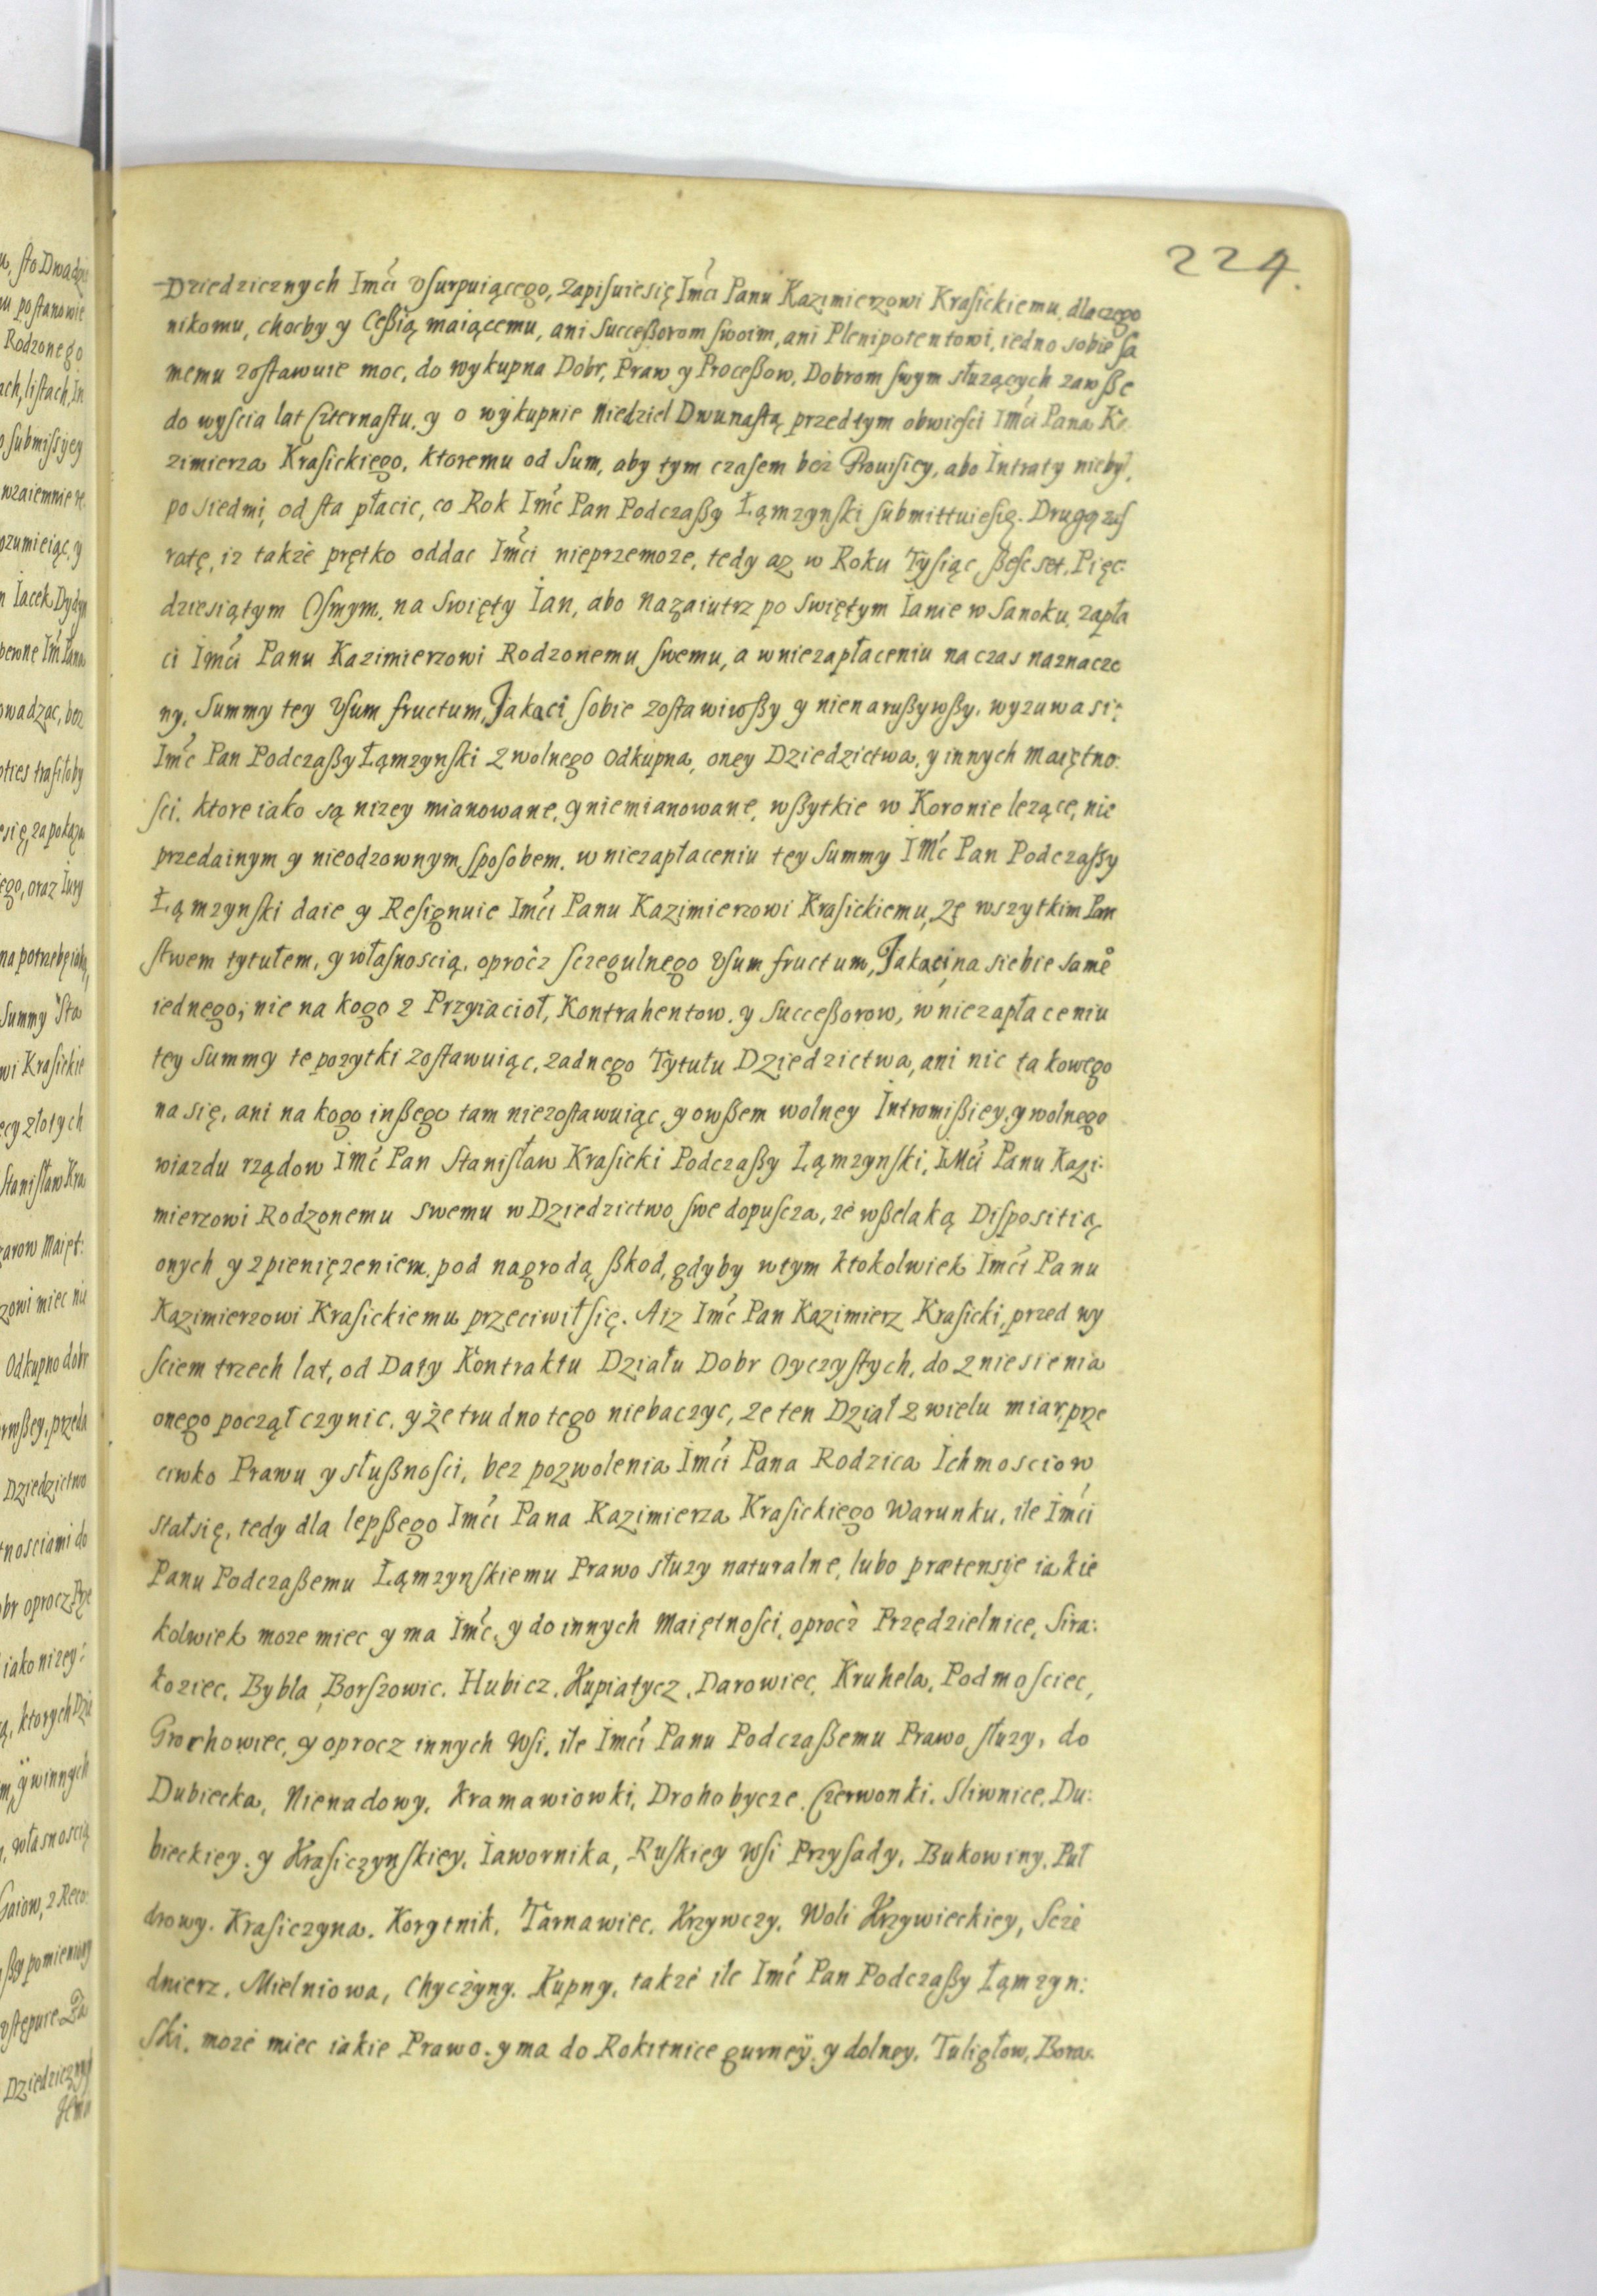 224.
Dziedzicznych Imći Vsurpuiącego, Zapisuiesię Imći Panu Kazimierzowi Krasickiemu, dlaczego
nikomu, choćby y Ceßią maiącemu, ani Succeßorom swoim, ani Plenipotentowi, iedno sobie sa
memu zostawuie moc, do wykupna Dobr, Praw y Proceßow, Dobrom swym służących zawße
do wyscia lat czternastu, y o wykupnie Niedziel Dwunastą przedtym obwiesci Imći Pana Ka
zimierza Krasickiego, ktoremu od Sum, aby tym czasem bez Prouisiey, abo Intraty niebył,
po siedmi, od sta płacic, co Rok Imć Pan Podczaßy Łąmzynski submittuiesię. Drugą zas
ratę, iz takze prętko oddac Imći nieprzemoze, tedy az w Roku Tysiąc, ßesc set, Pięc:
dziesiątym Osmym, na Swięty Ian, abo nazaiutrz po Swiętym Ianie w Sanoku, zapła
ci Imći Panu Kazimierzowi Rodzonemu swemu, a w niezapłaceniu na czas naznaczo
ny, Summy tey Vsum fructum, Jakąci sobie zostawiwßy y nienarußywßy, wyzuwa się
Imć Pan Podczaßy Łąmzynski z wolnego odkupna, oney Dziedzictwa, y innych Maiętno:
sci, ktore iako są nizey mianowane, y niemianowane, wßytkie w Koronie lezące, nie
przedainym y nieodzownym sposobem, w niezapłaceniu tey Summy Imć Pan Podczaßy
Łąmzynski daie y Resignuie Imći Panu Kazimierzowi Krasickiemu, Zę wszytkim Pan
stwem tytułem, y własnoscią, oprocz sczegulnego Vsum fructum, Jakąci, na siebie same͏̊
iednego, nie na kogo z Przyiacioł, Kontrahentow, y Succeßorow, w niezapłaceniu
tey Summy te pozytki zostawuiąc, zadnego Tytułu Dziedzictwa, ani nic takowego
na się, ani na kogo inßego tam niezostawuiąc, y owßem wolney Intromißiey, y wolnego
wiazdu rządow Imć Pan Stanisław Krasicki Podczaßy Łąmzynski, Imći Panu Kazi:
mierzowi Rodzonemu swemu w Dziedzictwo swe dopuscza, ze wßelaką Dispositią
onych y zpieniężeniem, pod nagrodą ßkod, gdyby wtym ktokolwiek Imći Panu
Kazimierzowi Krasickiemu przeciwiłsię. A iz Imć Pan Kazimierz Krasicki, przed wy
sciem trzech lat, od Daty Kontraktu Działu Dobr Oyczystych, do zniesienia
onego począł czynic, y że trudno tego niebaczyc, ze ten Dział z wielu miar, prze
ciwko Prawu y słußnosci, bez pozwolenia Imći Pana Rodzica Ichmosciow
stałsię, tedy dla lepßego Imći Pana Kazimierza Krasickiego Warunku, ile Imći
Panu Podczaßemu Łąmzynskiemu Prawo słuzy naturalne, lubo prætensije iakie
kolwiek moze miec y ma Imć, y do innych Maiętnosci, oprocz Przędzielnice, Sira:
koziec, Bybla, Borszowic, Hubicz, Kupiatycz, Darowiec, Kruhela, Podmosciec,
Grochowiec, y oprocz innych Wsi, ile Imći Panu Podczaßemu Prawo słuzy, do
Dubiecka, Nienadowy, Kramawiowki, Drohobycze, Czerwonki, Sliwnice, Du:
bieckiey, y Krasiczynskiey, Iawornika, Ruskiey Wsi Przysady, Bukowiny, Puł
drowy, Krasiczyna, Korytnik, Tarnawiec, Krzywczy, Woli Krzywieckiey, Scze
dnierz, Mielniowa, Chyczyny, Kupny, takze ile Imć Pan Podczaßy Łąmzyn:
ski, moze miec iakie Prawo, y ma do Rokitnice gurney, y dolney, Tuligłow,